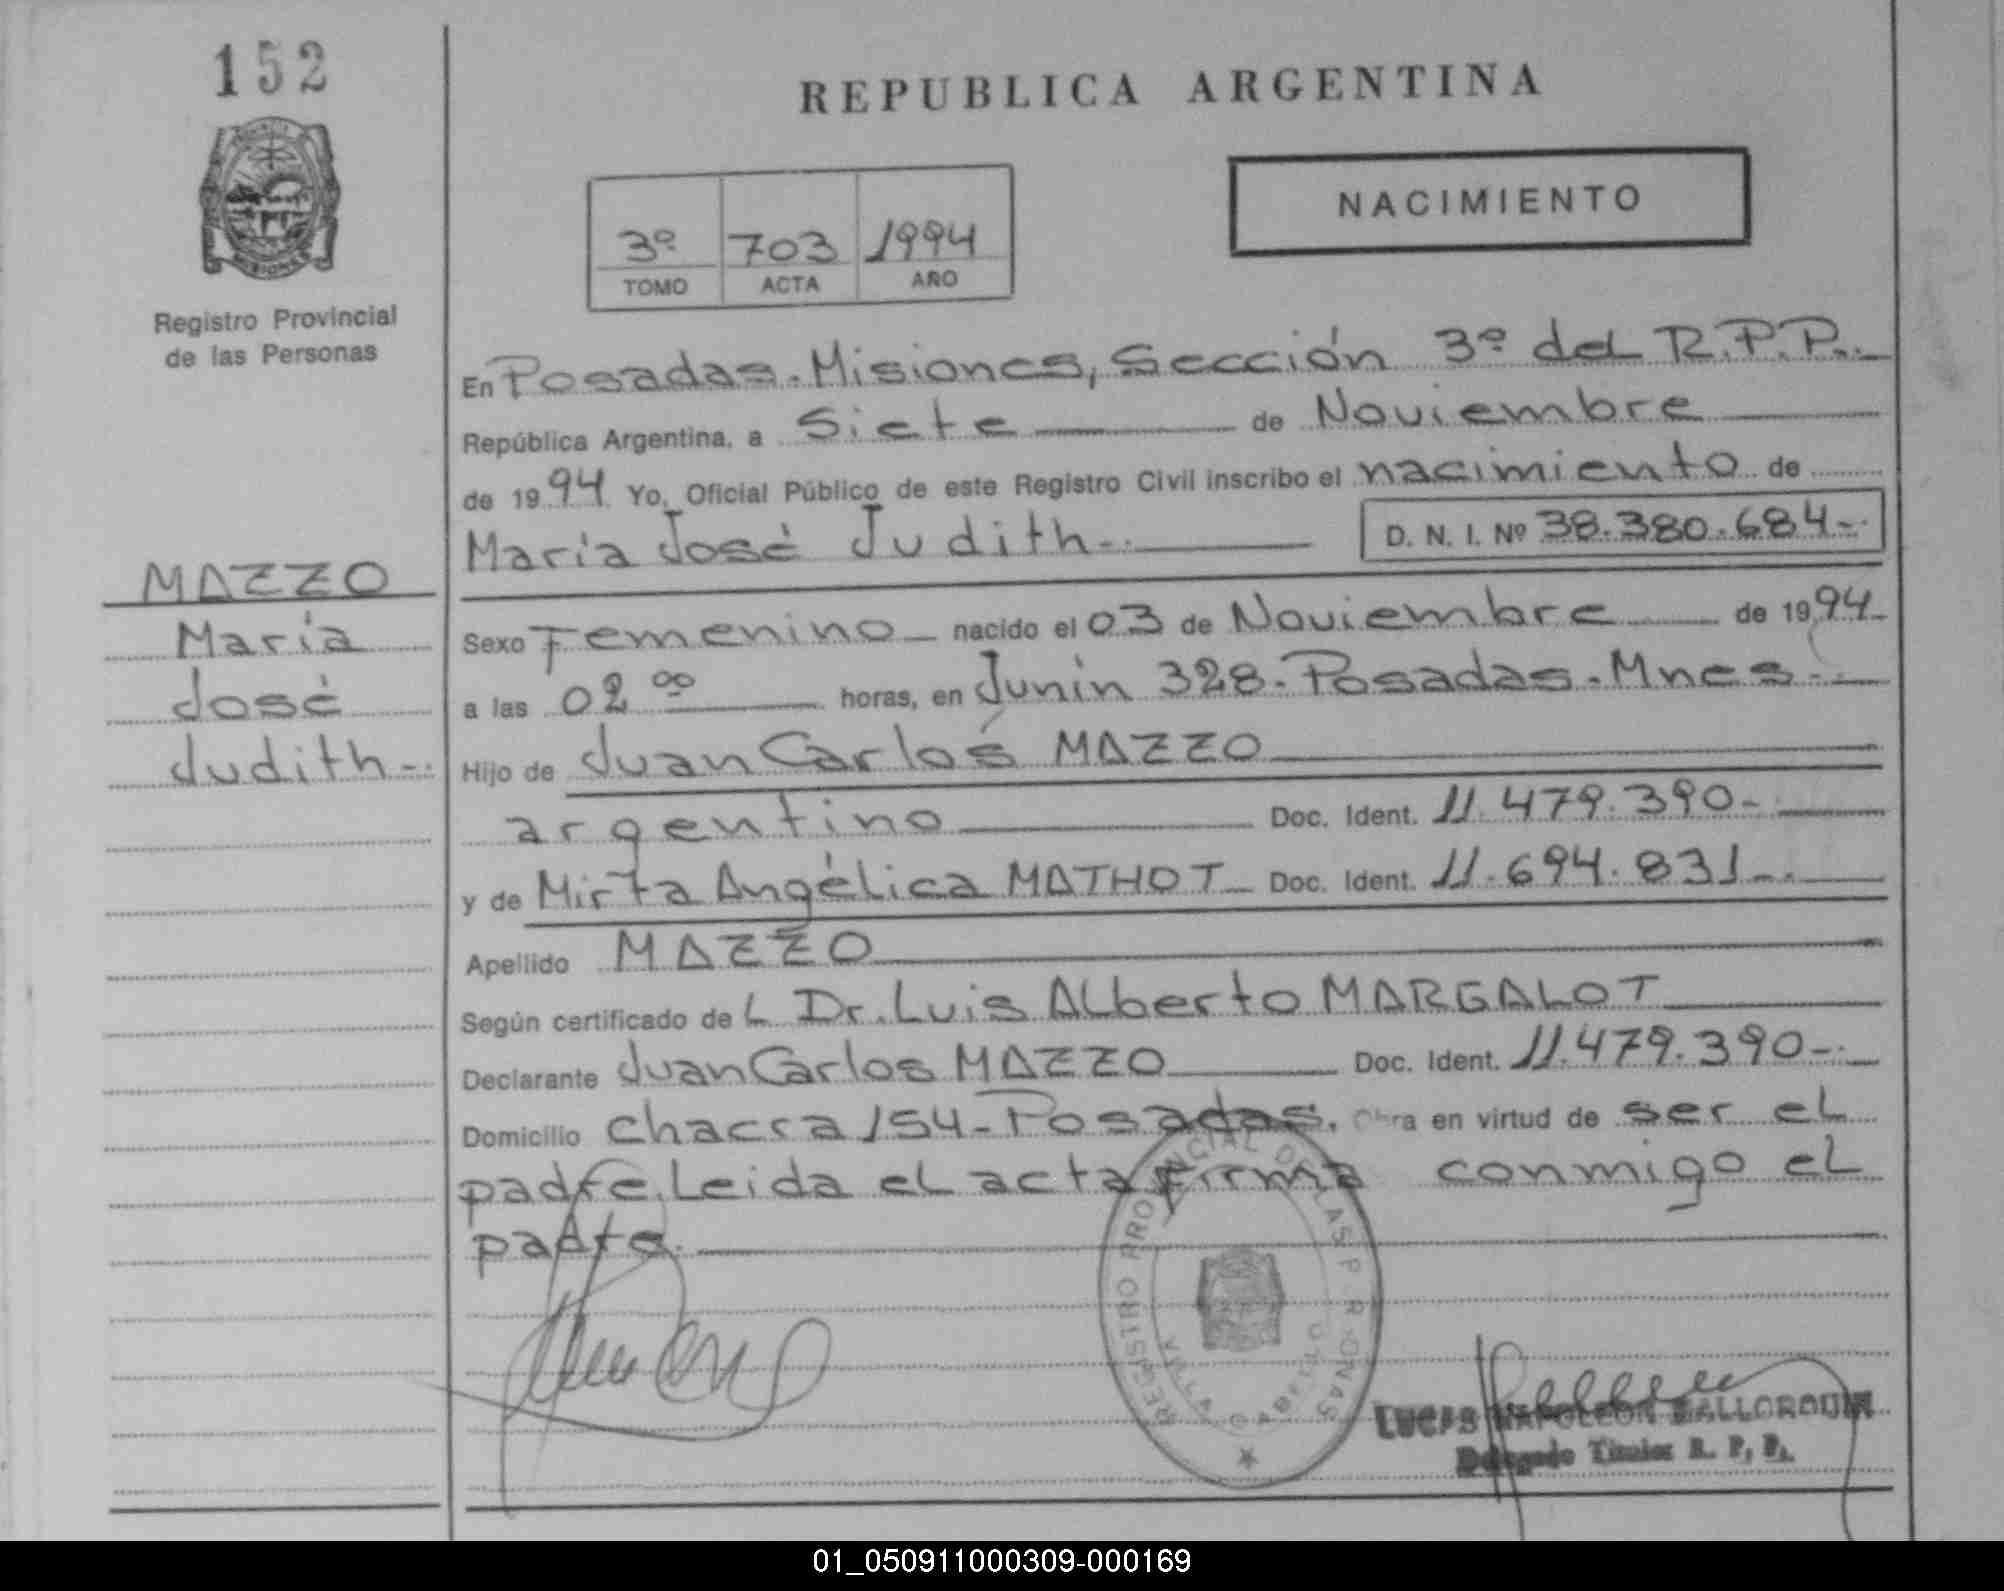 152
REPUBLICA ARGENTINA
NACIMIENTO
3º 703 1994
TOMO ACTA AÑO
MISIONES
Registro Provincial
de las Personas
En Posadas.Misiones, Sección 3º del R.P.P..
República Argentina, a Siete de Noviembre
de 1994 Yo, Oficial Público de este Registro Civil inscribo el nacimiento de
María José Judith-. D. N. I. Nº 38.380.684-.
MAZZO
María
José
Judith-.
Sexo Femenino nacido el 03 de Noviembre de 1994-
a las 02 00 horas, en Junin 328.Posadas.Mnes-.
Hijo de Juan Carlos MAZZO
argentino Doc. Ident. 11.479.390-.
y de Mirta Angélica MATHOT Doc. Ident. 11.694.831-.
Apellido MAZZO
Según certificado de L Dr. Luis Alberto MARGALOT
Declarante Juan Carlos MAZZO Doc. Ident. 11.479.390-.
Domicilio Chacra 154-Posadas. Obra en virtud de ser el
padre.Leida el acta firma conmigo el
padre.
REGISTRO PROVINCIAL DE LAS PERSONAS
LUCAS NAPOLEON MALLORQUIN
Delegado Titular R. P. P.
01_050911000309-000169